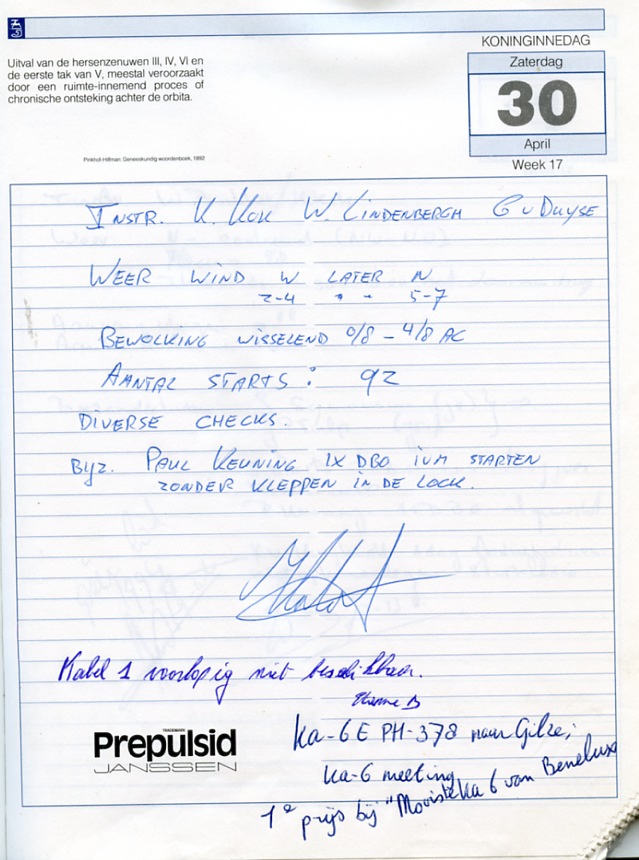 KONINGINNEDAG
Zaterdag
30
April
Week 17
Uitval van de hersenzenuwen III, IV, VI en
de eerste tak van V, meestal veroorzaakt
door een ruimte-innemend proces of
chronische ontsteking achter de orbita.
Pinkhof-Hilfman: Geneeskundig woordenboek, 1992
INSTR. K. KOK W. LINDENBERGH G v DUYSE
WEER WIND W LATER N
2-4 " " 5-7
BEWOLKING WISSELEND 0/8 - 4/8 AC
AANTAL STARTS: 92
DIVERSE CHECKS.
Byz. PAUL KEUNING 1X DBO IVM STARTEN
ZONDER KLEPPEN IN DE LOCK.
Kabel 1 voorlopig niet beschikbaar.
TRADEMARK
Prepulsid
JANSSEN
Ka-6E PH-378 naar Gilze;
Ka-6 meeting
1e prijs bij "Mooiste Ka 6 van Benelux